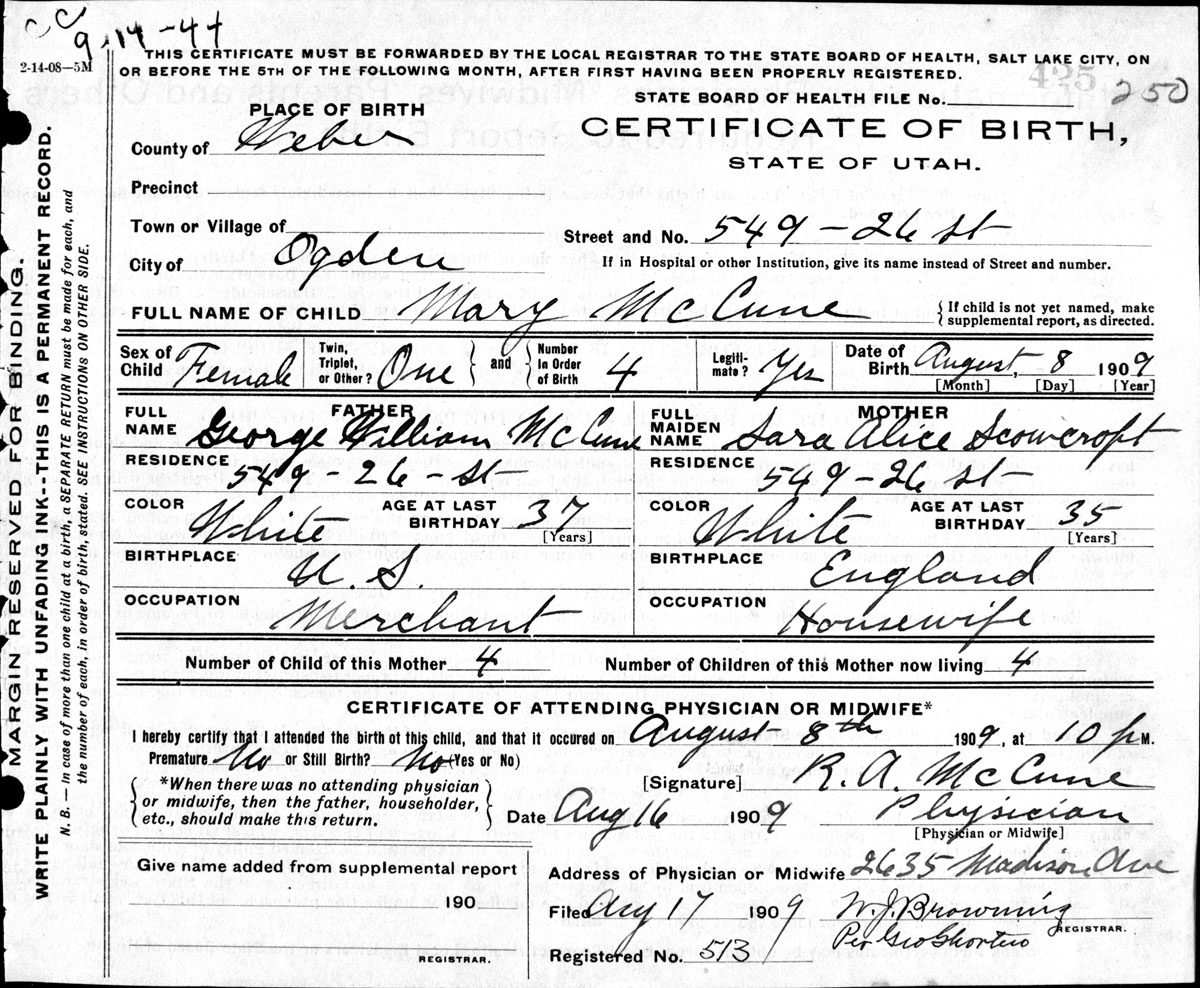 CC
9-14-44
2-14-08—5M
THIS CERTIFICATE MUST BE FORWARDED BY THE LOCAL REGISTRAR TO THE STATE BOARD OF HEALTH, SALT LAKE CITY, ON
OR BEFORE THE 5TH OF THE FOLLOWING MONTH, AFTER FIRST HAVING BEEN PROPERLY REGISTERED.
425
STATE BOARD OF HEALTH FILE No. 250
PLACE OF BIRTH
CERTIFICATE OF BIRTH,
STATE OF UTAH.
County of Weber
Precinct
Town or Village of
Street and No. 549 - 26 St
City of Ogden
If in Hospital or other Institution, give its name instead of Street and number.
FULL NAME OF CHILD Mary McCune {If child is not yet named, make supplemental report, as directed.
Sex of Child Female Twin, Triplet, or Other? One } and { Number in Order of Birth 4 Legiti-mate? Yes Date of Birth August, 8 1909
[Month] [Day] [Year]
FATHER
FULL NAME George William McCune
RESIDENCE 549 - 26 - St
COLOR White AGE AT LAST BIRTHDAY 37 [Years]
BIRTHPLACE U. S.
OCCUPATION Merchant
MOTHER
FULL MAIDEN NAME Sara Alice Scowcroft
RESIDENCE 549 - 26 St
COLOR White AGE AT LAST BIRTHDAY 35 [Years]
BIRTHPLACE England
OCCUPATION Housewife
Number of Child of this Mother 4 Number of Children of this Mother now living 4
CERTIFICATE OF ATTENDING PHYSICIAN OR MIDWIFE*
I hereby certify that I attended the birth of this child, and that it occured on August 8th 1909, at 10 p M.
Premature No or Still Birth? No (Yes or No)
{ *When there was no attending physician
or midwife, then the father, householder,
etc., should make this return. }
[Signature] R. A. McCune
Date Aug 16 1909 Physician
[Physician or Midwife]
Give name added from supplemental report
190
REGISTRAR.
Address of Physician or Midwife 2635 Madison Ave
Filed Aug 17 1909 W. J. Browning
REGISTRAR.
Per Geo
Registered No. 513
MARGIN RESERVED FOR BINDING.
WRITE PLAINLY WITH UNFADING INK--THIS IS A PERMANENT RECORD.
N. B. — in case of more than one child at a birth, a SEPARATE RETURN must be made for each, and
the number of each, in order of birth, stated. SEE INSTRUCTIONS ON OTHER SIDE.